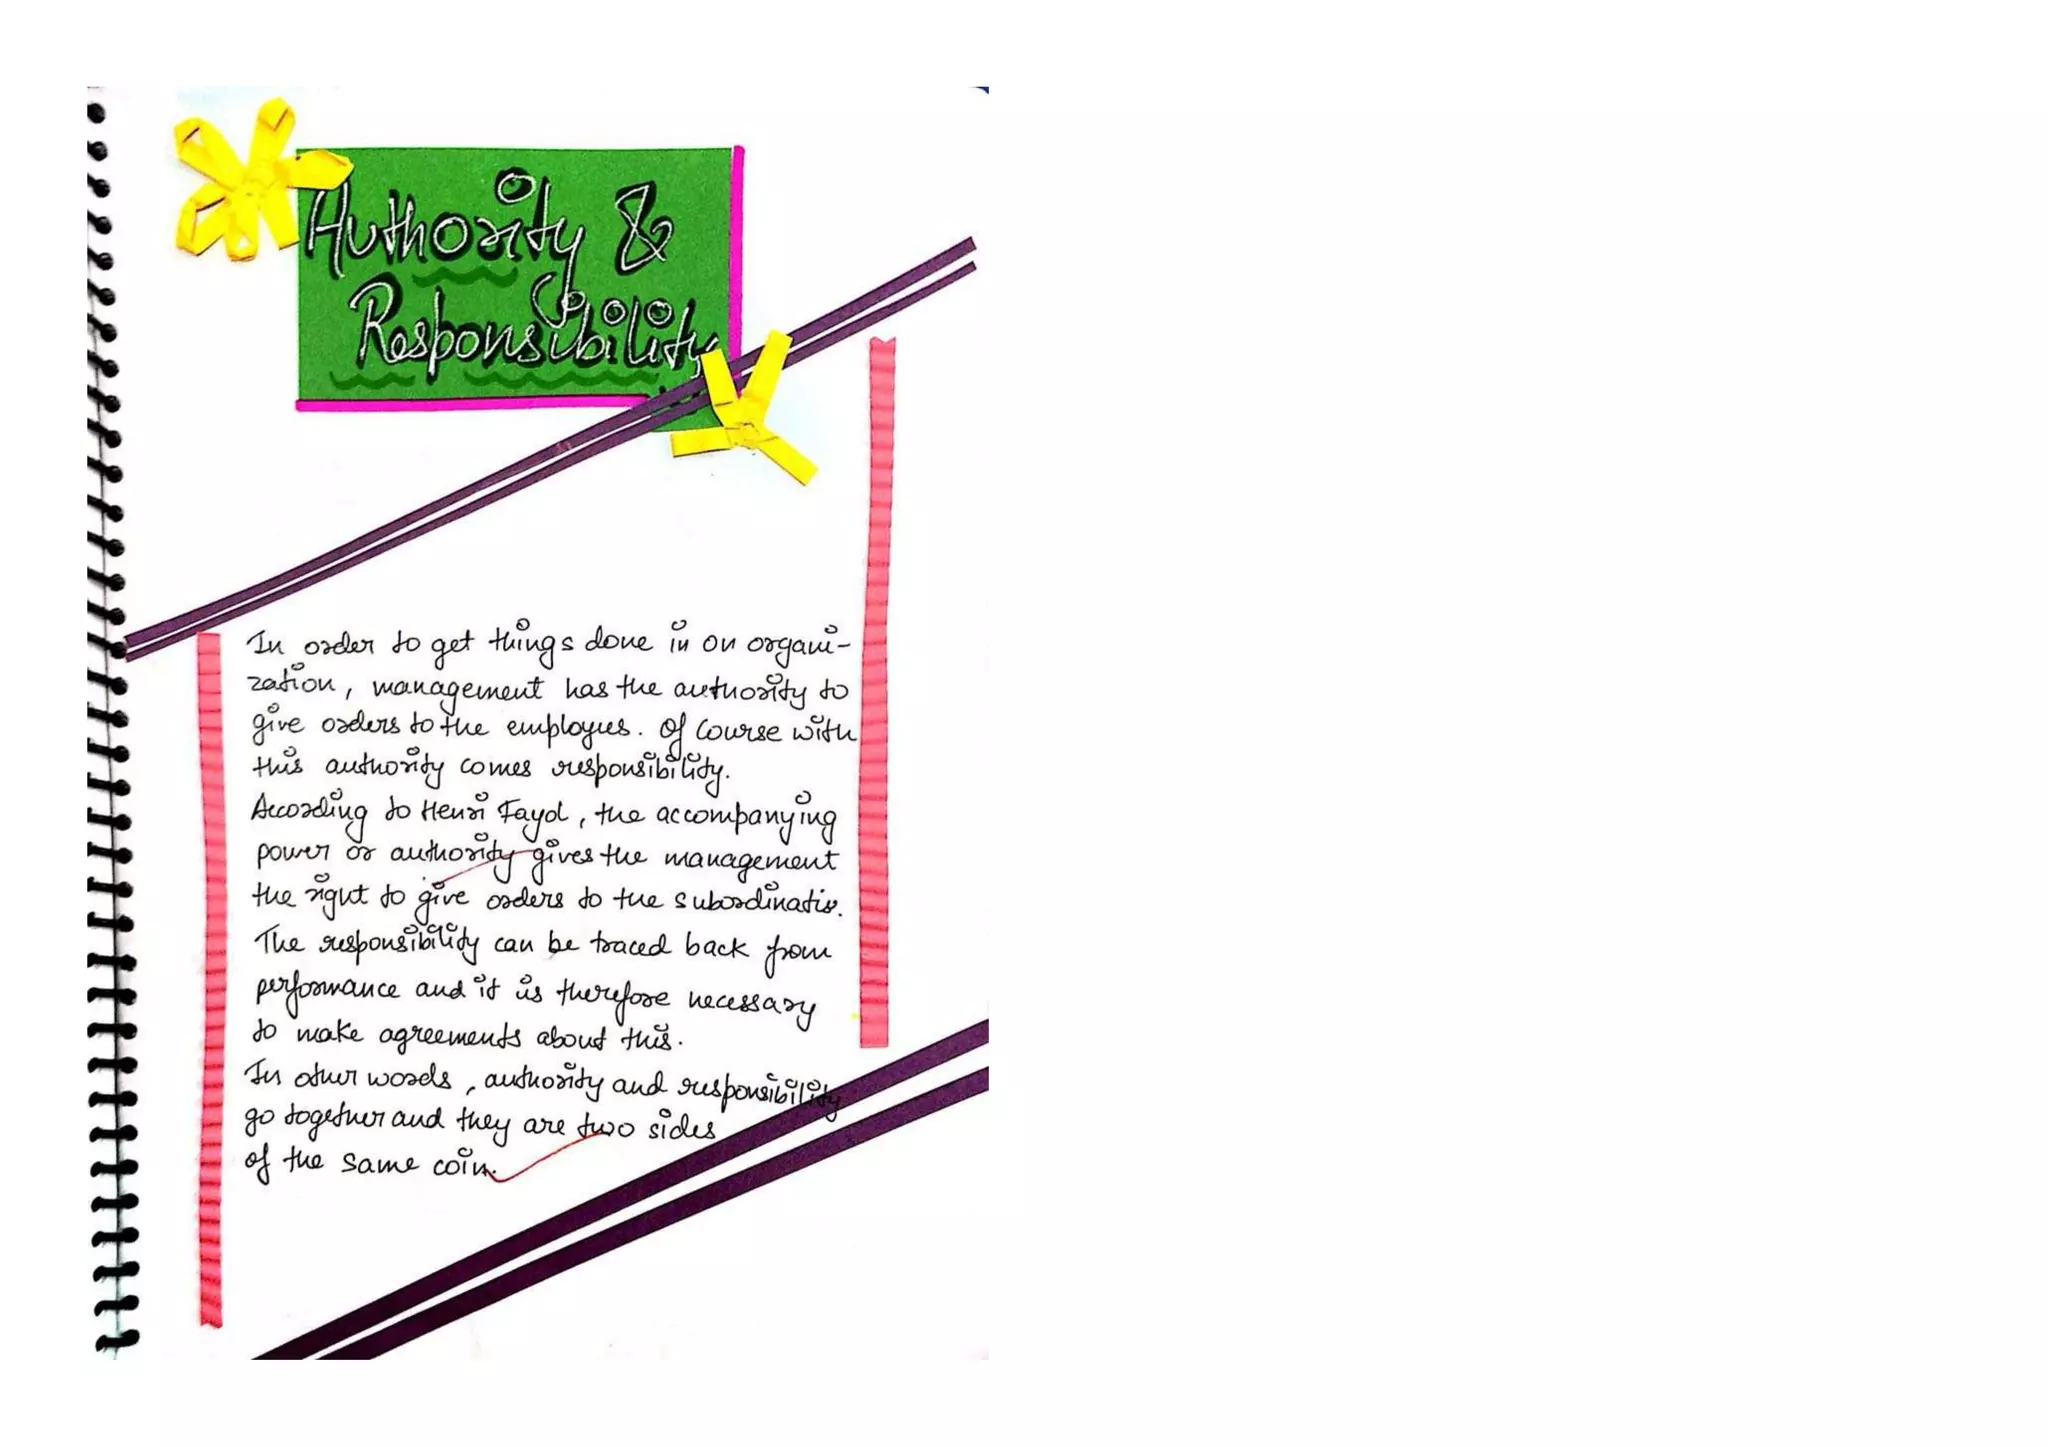 Authority &
Responsibility
In order to get things done in on organi-
zation, management has the authority to
give orders to the employees. Of course with
this authority comes responsibility.
According to Henri Fayol, the accompanying
power or authority gives the management
the right to give orders to the subordinatis.
The responsibility can be traced back from
performance and it is therefore necessary
to make agreements about this.
In other words, authority and responsibility
go together and they are two sides
of the same coin.